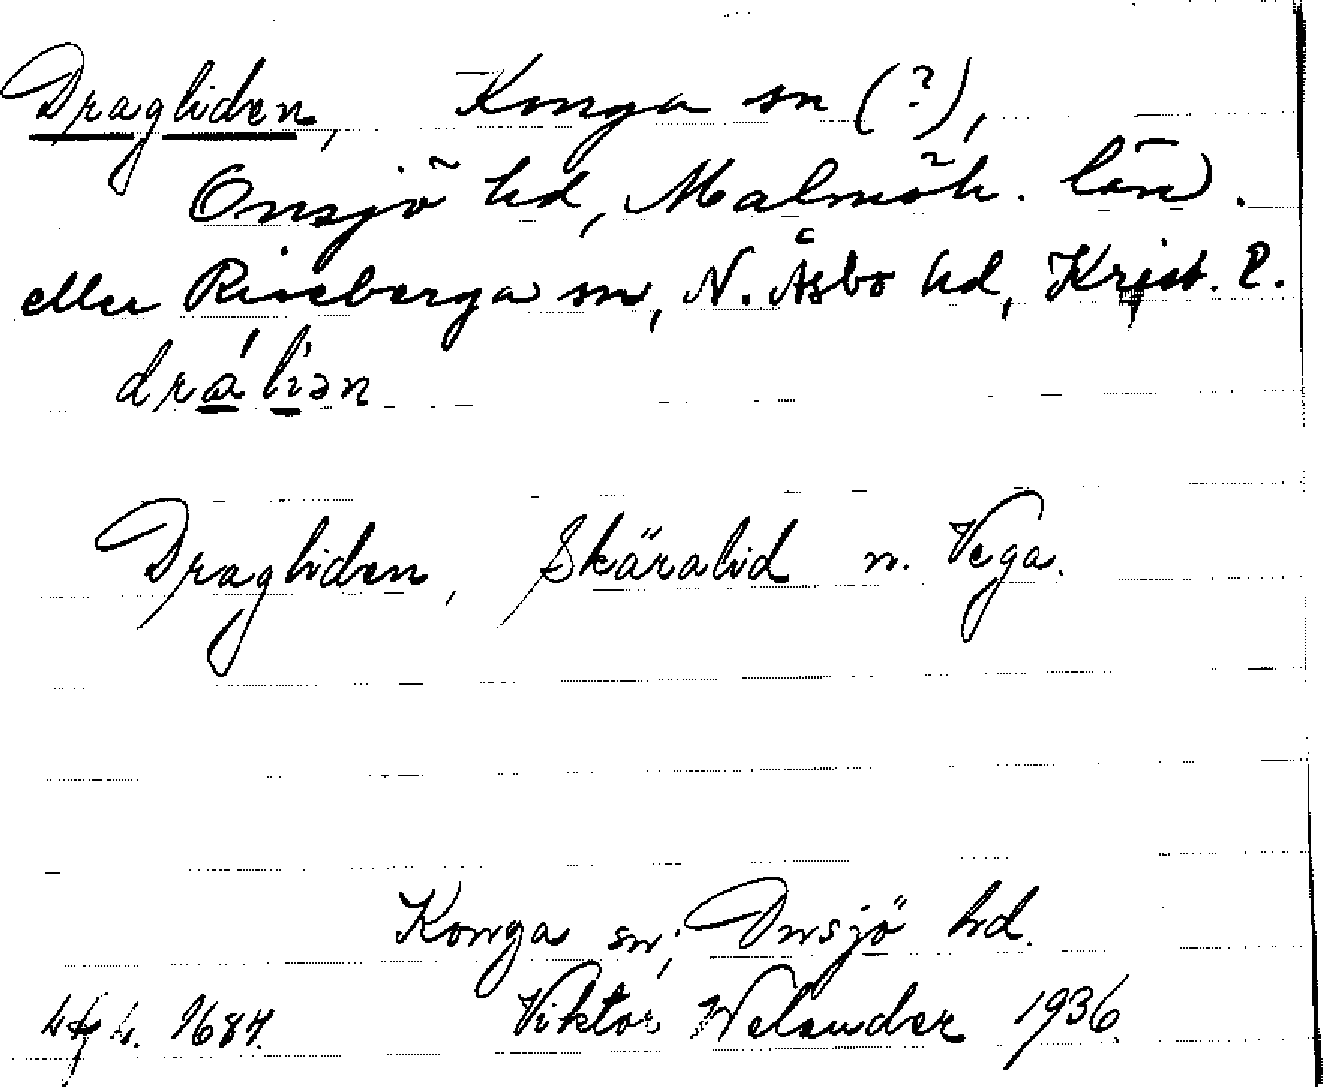 Dragliden, Konga sn (?),
Onsjö hd, Malmöh. län.
eller Riseberga sn, N. Åsbo hd, Krist. l.
drálían
Dragliden, Skäralid n. Vega.
Konga sn, Onsjö hd.
1684. Viktor Welander 1936.